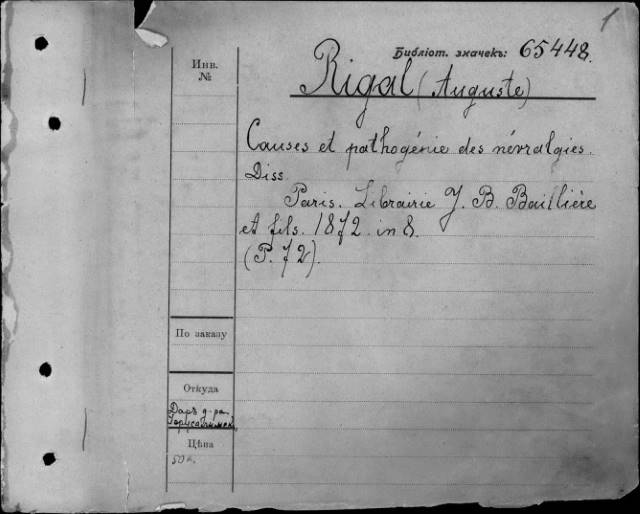 1
Библіот. значекъ: 65448.
Инв.
№
Rigal (Auguste)
Causes et pathogénie des névralgies.
Diss.
Paris. Librairie J. B. Baillière
et fils. 1872. in 8.
(P. 72).
По заказу
Откуда
Даръ д-ра
Цѣна
50 к.